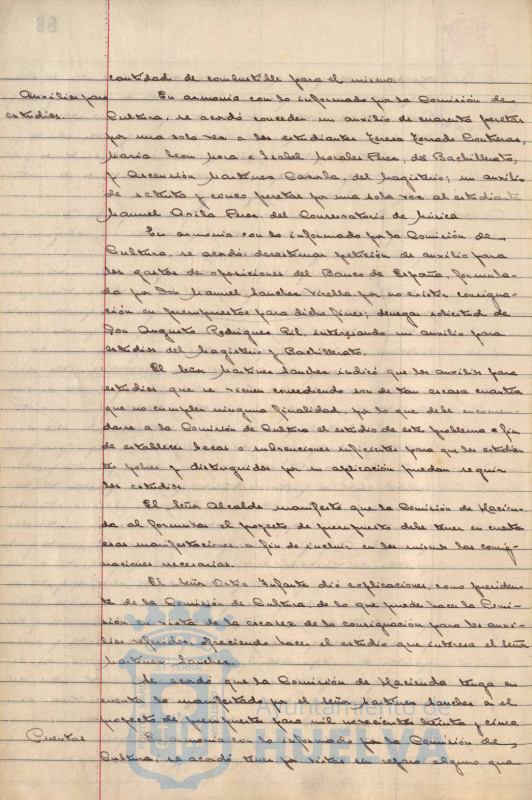 cantidad de combustible para el mismo.
Auxilios para estudios.
En armonía con lo informado por la Comisión de
Cultura, se acordó conceder un auxilio de cuarenta pesetas
por una sola vez a los estudiantes Teresa Torrado Contreras,
María León Mora e Isabel Morales Pérez, del Bachillerato,
y Ascensión Martínez Cazorla, del Magisterio; un auxilio
de setenta y cinco pesetas por una sola vez al estudiante
Manuel Avila Pérez, del Conservatorio de Música.
En armonía con lo informado por la Comisión de
Cultura, se acordó: desestimar petición de auxilio para
los gastos de oposiciones del Banco de España, formula-
da por Don Manuel Sánchez por no existir consigna-
ción en presupuestos para dichos fines; denegar solicitud de
Don Augusto Rodríguez Gil, interesando un auxilio para
estudios del Magisterio y Bachillerato.
El Señor Martínez Sánchez indicó que los auxilios para
estudios que se vienen concediendo son de tan escasa cuantía
que no cumplen ninguna finalidad, por lo que debe encomen-
darse a la Comisión de Cultura el estudio de este problema a fin
de establecer becas o subvenciones suficientes para que los estudian-
tes pobres y distinguidos por su aplicación puedan seguir
los estudios.
El Señor Alcalde manifestó que la Comisión de Hacien-
da al formular el proyecto de presupuesto debe tener en cuenta
esas manifestaciones, a fin de incluir en los mismos las consig-
naciones necesarias.
El Señor Infante dió explicaciones, como presiden-
te de la Comisión de Cultura, de lo que puede hacer la Comi-
sión en vista de la escasez de la consignación para los auxi-
lios referidos, ofreciendo hacer el estudio que interesa el Señor
Martínez Sánchez.
Se acordó que la Comisión de Hacienda tenga en
cuenta lo manifestado por el Señor Martínez Sánchez en el
proyecto de presupuestos para mil novecientos treinta y cinco.
Cuentas
En armonía con lo informado por la Comisión de
Cultura, se acordó tener por vistas sin reparo alguno que
Ayuntamiento de
HUELVA